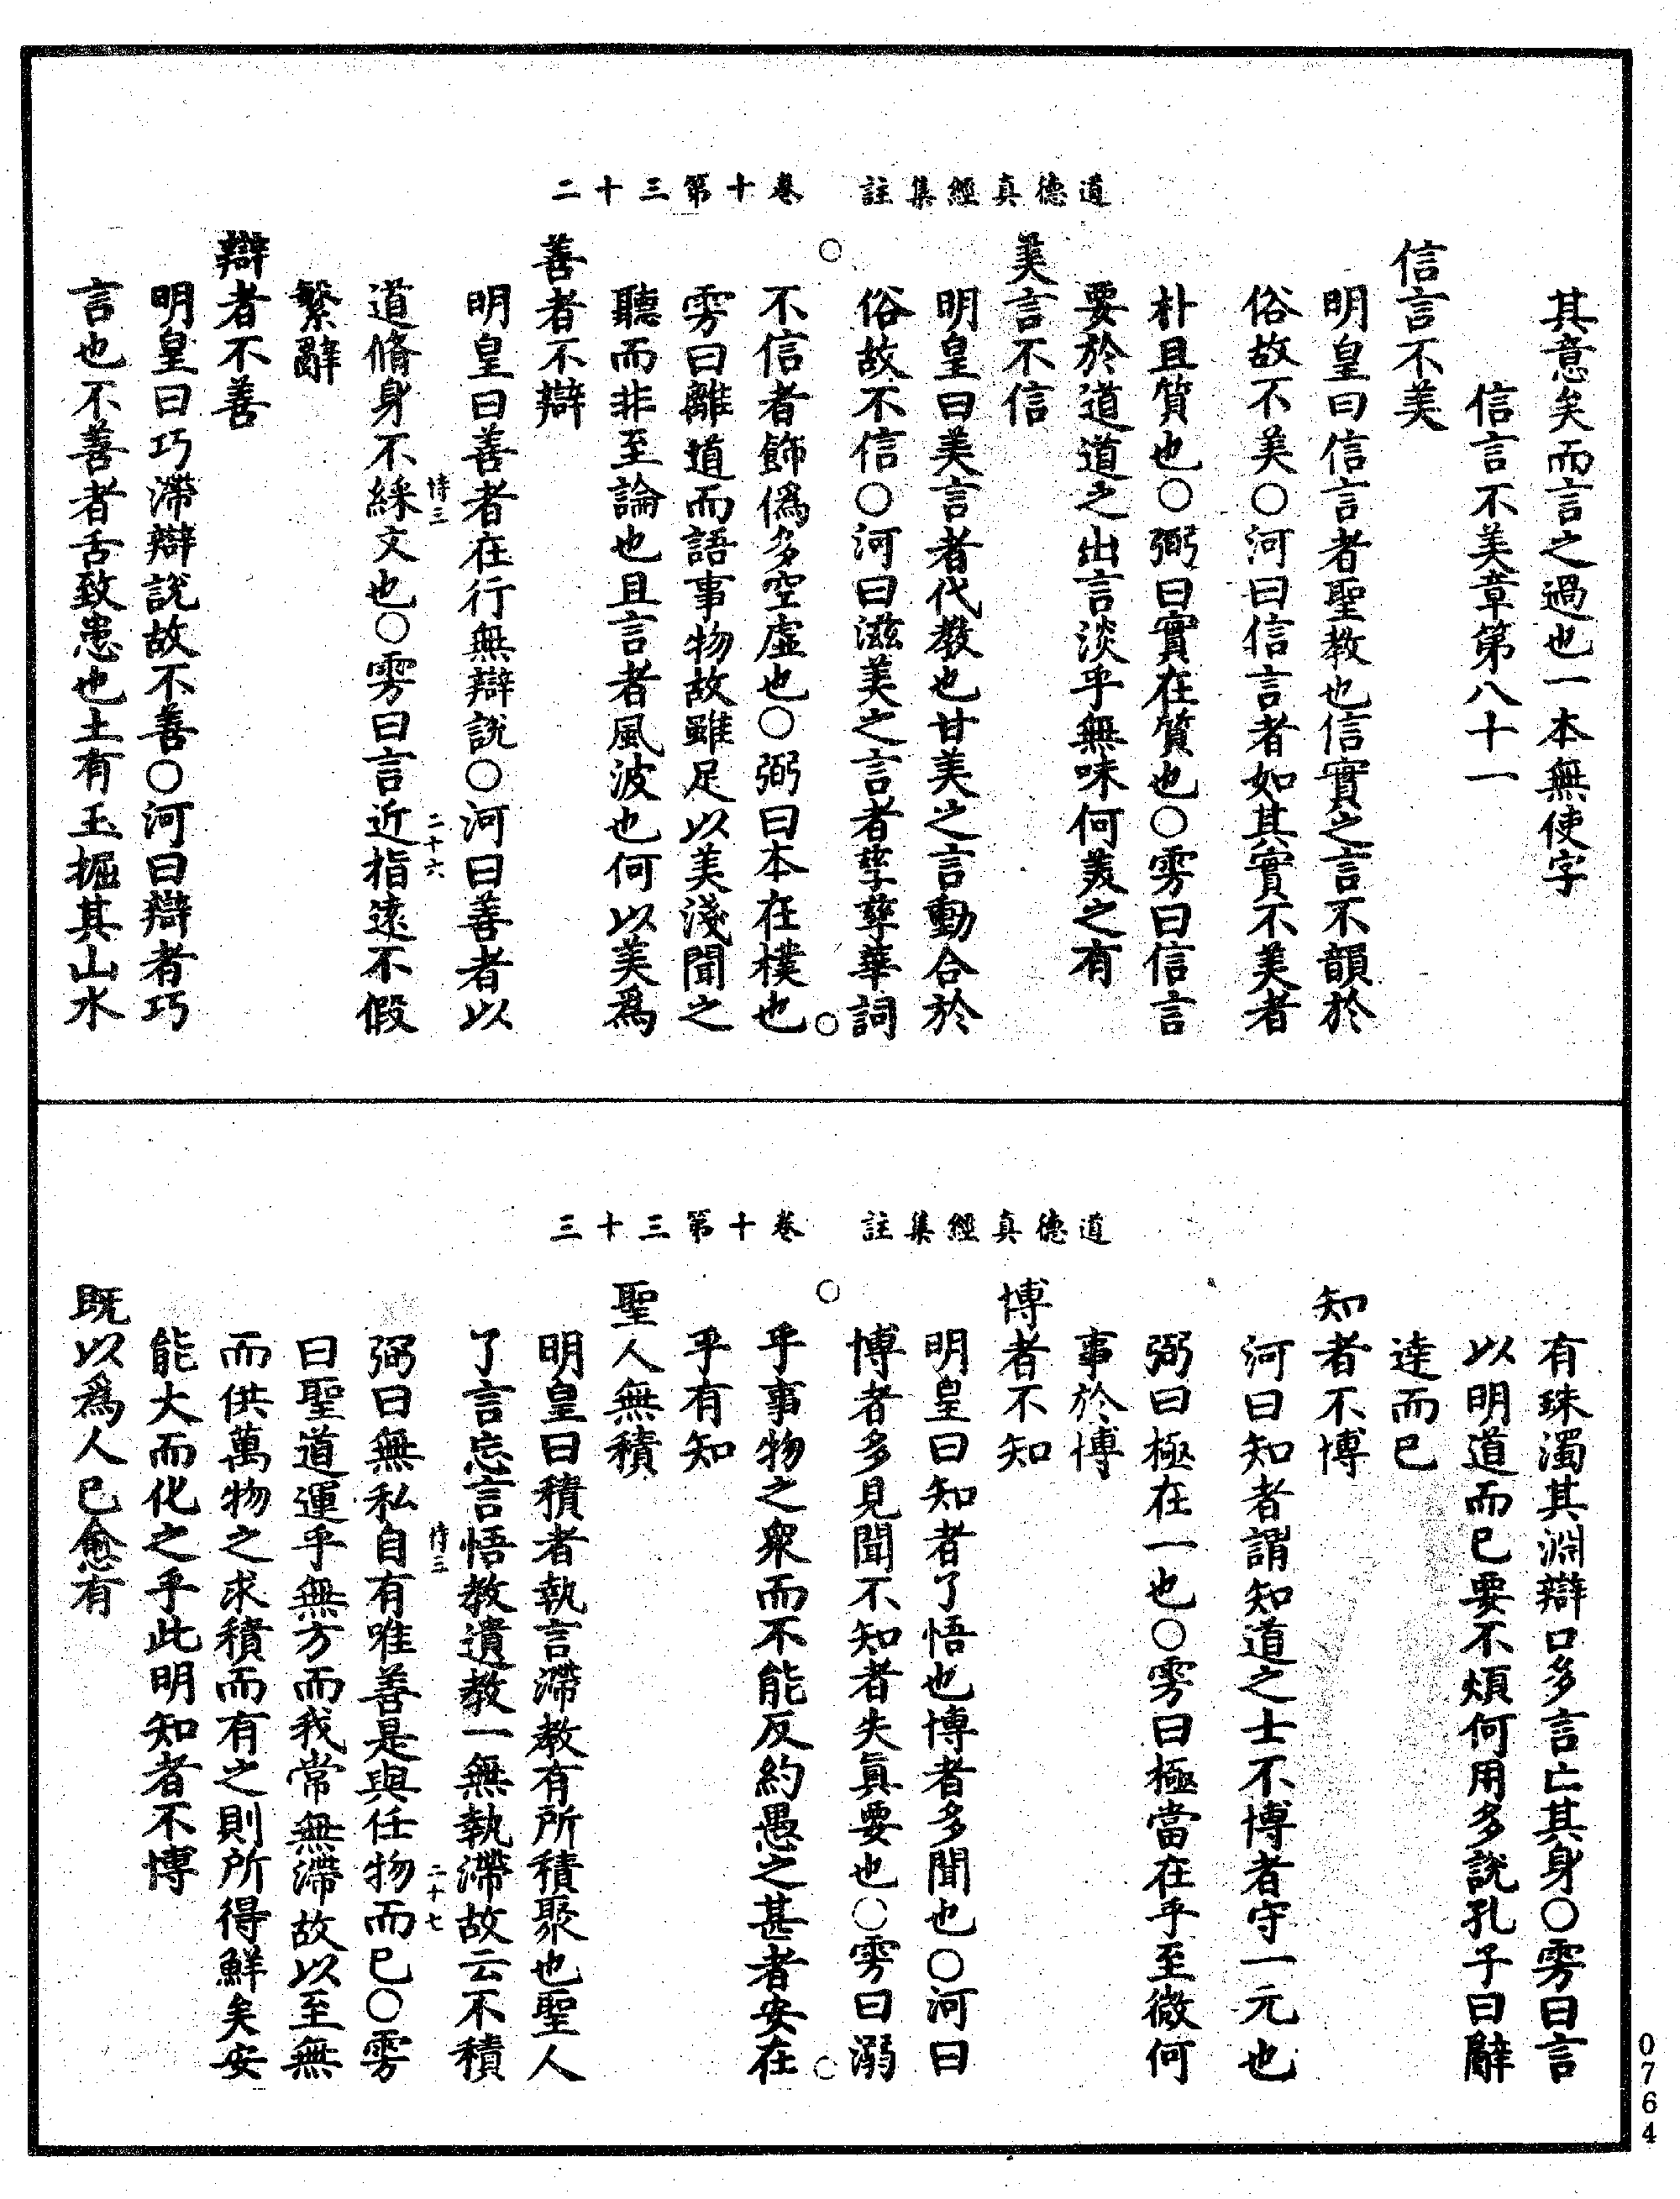 道德真經集註　卷十第三十二
其意矣而言之過也一本無使字
信言不美章第八十一
信言不美
明皇曰信言者聖教也信實之言不韻於
俗故不美○河曰信言者如其實不美者
朴且質也○弼曰實在質也○雱曰信言
要於道道之出言淡乎無味何美之有
美言不信
明皇曰美言者代教也甘美之言動合於
俗故不信○河曰滋美之言者孳孳華詞
不信者飾偽多空虛也○弼曰本在樸也
雱曰離道而語事物故雖足以美淺聞之
聽而非至論也且言者風波也何以美爲
善者不辯
明皇曰善者在行無辯說○河曰善者以
恃三　二十六
道脩身不綵文也○雱曰言近指遠不假
繁辭
辯者不善
明皇曰巧滯辯說故不善○河曰辯者巧
言也不善者舌致患也土有玉掘其山水
道德真經集註　卷十第三十三
有珠濁其淵辯口多言亡其身○雱曰言
以明道而已要不煩何用多說孔子曰辭
達而已
知者不博
河曰知者謂知道之士不博者守一元也
弼曰極在一也○雱曰極當在乎至微何
事於博
博者不知
明皇曰知者了悟也博者多聞也○河曰
博者多見聞不知者失真要也○雱曰溺
乎事物之衆而不能反約愚之甚者安在
乎有知
聖人無積
明皇曰積者執言滯教有所積聚也聖人
了言忘言悟教遺教一無執滯故云不積
恃三　二十七
弼曰無私自有唯善是與任物而已○雱
曰聖道運乎無方而我常無滯故以至無
而供萬物之求積而有之則所得鮮矣安
能大而化之乎此明知者不博
既以爲人已愈有
0764